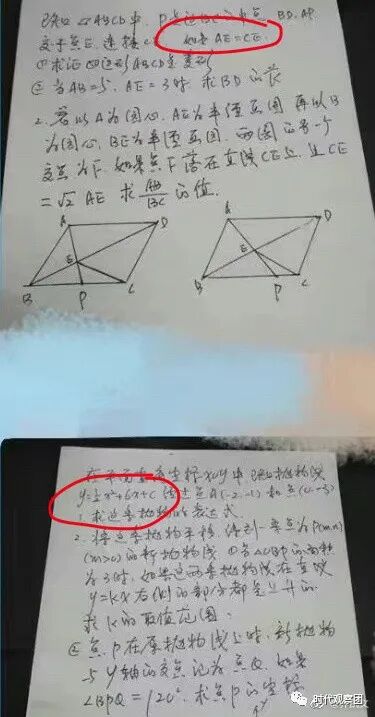 已知▱ABCD中，P是边BC的中点，BD、AP
交于点E，连接CE 如果AE=CE.
①求证四边形ABCD是菱形
② 当AB=5，AE=3时，求BD的长
2. 若以A为圆心，AE为半径画圆，再以B
为圆心，BE为半径画圆，两圆的另一个
交点为F，如果点F落在直线CE上，且CE
=√2 AE 求 AB/BC 的值.
A D A D
E E
B P C B P C
在平面直角坐标xoy中，已知抛物线
y=½x²+bx+c 经过点A(-2,-1)和点(0,-3)
1. 求这条抛物线的表达式
2. 将这条抛物线平移，得到一条点P(m,n)
(m>0)的新抛物线 ①当△OBP的面积
为3时，如果这两条抛物线在直线
y=k 右侧的部分都是上升的
求k的取值范围.
② 点P在原抛物线上时，新抛物
与y轴的交点记为点Q，如果
∠BPQ=120°，求点P的坐标
时代观察团